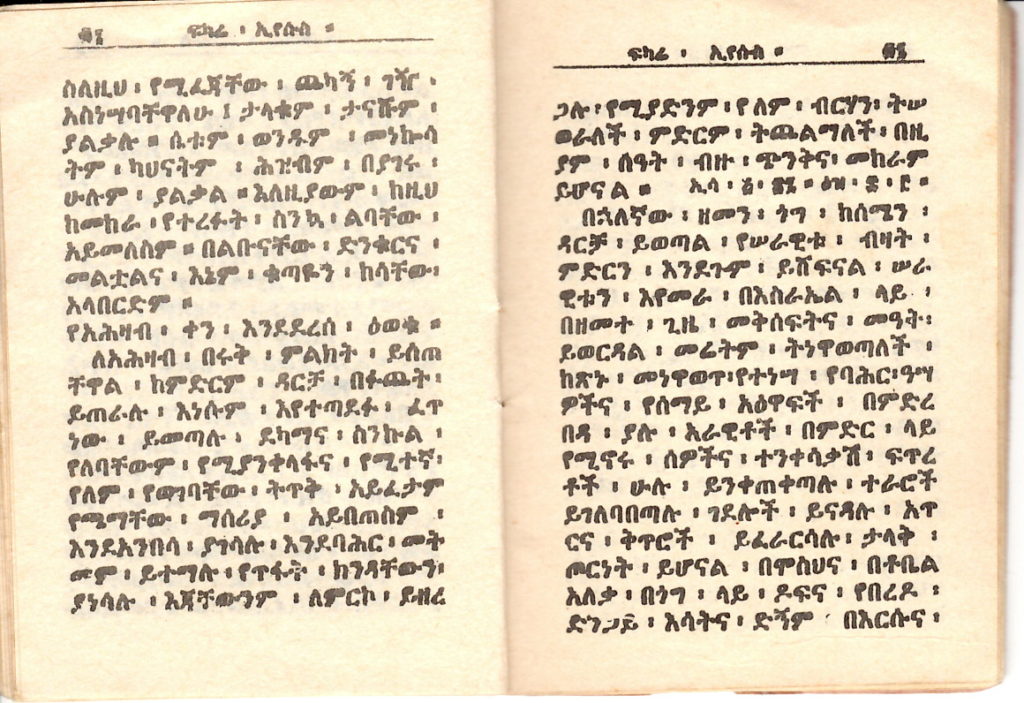 ፳፮ ፍካሬ ፡ ኢየሱስ ።
ስለዚህ ፡ የሚፈጃቸው ፡ ጨካኝ ፡ ገዥ ፡
አስነሣባቸዋለሁ ፤ ታላቁም ፡ ታናሹም ፡
ያልቃሉ ። ሴቱም ፡ ወንዱም ፡ መነኲሳ
ትም ፡ ካህናትም ፡ ሕዝብም ፡ በያገሩ ፡
ሁሉም ፡ ያልቃል ። እለዚያውም ፡ ከዚህ
ከመከራ ፡ የተረፉት ፡ ስንኳ ፡ ልባቸው ፡
አይመለስም ። በልቡናቸው ፡ ድንቁርና ፡
መልቷልና ፡ እኔም ፡ ቁጣዬን ፡ ከሳቸው፡
አላበርድም ።
የአሕዛብ ፡ ቀን ፡ እንደደረሰ ፡ ዕወቁ ።
ለአሕዛብ ፡ በሩቅ ፡ ምልክት ፡ ይሰጠ
ቸዋል ፡ ከምድርም ፡ ዳርቻ ፡ በፉጨት፡
ይጠራሉ ፡ እነሱም ፡ እየተጣደፉ ፡ ፈጥ
ነው ፡ ይመጣሉ ፡ ደካማና ፡ ስንኩል ፡
የለባቸውም ፡ የሚያንቀላፋና ፡ የሚተኛ፡
የለም ፡ የወገባቸው ፡ ትጥቅ ፡ አይፈታም
የጫማቸው ፡ ማሰሪያ ፡ አይበጠስም ፡
እንደአንበሳ ፡ ያገሳሉ ፡ እንደባሕር ፡ መት
መም ፡ ይተማሉ ፡ የጥፋት ፡ ክንዳቸውን፡
ያነሳሉ ፡ እጃቸውንም ፡ ለምርኮ ፡ ይዘረ
ፍካሬ ፡ ኢየሱስ ። ፳፯
ጋሉ ፡ የሚያድንም ፡ የለም ፡ ብርሃን፡ ትሠ
ወራለች ፡ ምድርም ፡ ትጨልማለች ፡ በዚ
ያም ፡ ሰዓት ፡ ብዙ ፡ ጭንቅና፡ መከራም
ይሆናል ። ኢሳ ፡ ፭ ፡ ፳፮ ። ፡ ፡
በኋለኛው ፡ ዘመን ፡ ጎግ ፡ ከሰሜን ፡
ዳርቻ ፡ ይወጣል ፡ የሠራዊቱ ፡ ብዛት ፡
ምድርን ፡ እንደጉም ፡ ይሸፍናል ፡ ሠራ
ዊቱን ፡ እየመራ ፡ በእስራኤል ፡ ላይ ፡
በዘመተ ፡ ጊዜ ፡ መቅሰፍትና ፡ መዓት፡
ይወርዳል ፡ መሬትም ፡ ትነዋወጣለች ፡
ከጽኑ ፡ መነዋወጥ፡የተነሣ ፡ የባሕር፡ዓሣ
ዎችና ፡ የሰማይ ፡ አዕዋፍች ፡ በምድረ
በዳ ፡ ያሉ ፡ አራዊቶች ፡ በምድር ፡ ላይ
የሚኖሩ ፡ ሰዎችና ፡ ተንቀሳቃሽ ፡ ፍጥረ
ቶች ፡ ሁሉ ፡ ይንቀጠቀጣሉ ፡ ተራሮች
ይገለባበጣሉ ፡ ገደሎች ፡ ይናዳሉ ፡ አጥ
ርና ፡ ቅጥሮች ፡ ይፈራርሳሉ ፡ ታላቅ ፡
ጦርነት ፡ ይሆናል ፡ በሞስህና ፡ በቶቤል
አለቃ ፡ በጎግ ፡ ላይ ፡ ዶፍና ፡ የበረዶ ፡
ድንጋይ ፡ እሳትና ፡ ድኝም ፡ በእርሱና ፡